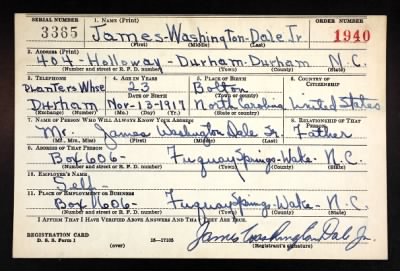 SERIAL NUMBER 1. NAME (Print) ORDER NUMBER
3365 James-Washington-Dale Jr. 1940
(First) (Middle) (Last)
2. ADDRESS (Print)
404-Holloway-Durham-Durham N.C.
(Number and street or R. F. D. number) (Town) (County) (State)
3. TELEPHONE 4. AGE IN YEARS 5. PLACE OF BIRTH 6. COUNTRY OF CITIZENSHIP
Planters Whse 23 Bolton
DATE OF BIRTH (Town or county)
Durham Nov-13-1917 North Carolina United States
(Exchange) (Number) (Mo.) (Day) (Yr.) (State or country)
7. NAME OF PERSON WHO WILL ALWAYS KNOW YOUR ADDRESS 8. RELATIONSHIP OF THAT PERSON
Mr. James Washington Dale Sr. Father
(Mr., Mrs., Miss) (First) (Middle) (Last)
9. ADDRESS OF THAT PERSON
Box 606- Fuquay Springs-Wake-N.C.
(Number and street or R. F. D. number) (Town) (County) (State)
10. EMPLOYER'S NAME
Self-
11. PLACE OF EMPLOYMENT OR BUSINESS
Box 606- Fuquay Springs-Wake-N.C.
(Number and street or R. F. D. number) (Town) (County) (State)
I AFFIRM THAT I HAVE VERIFIED ABOVE ANSWERS AND THAT THEY ARE TRUE.
REGISTRATION CARD James Washington Dale Jr.
D. S. S. Form 1 (over) 16-17105 (Registrant's signature)